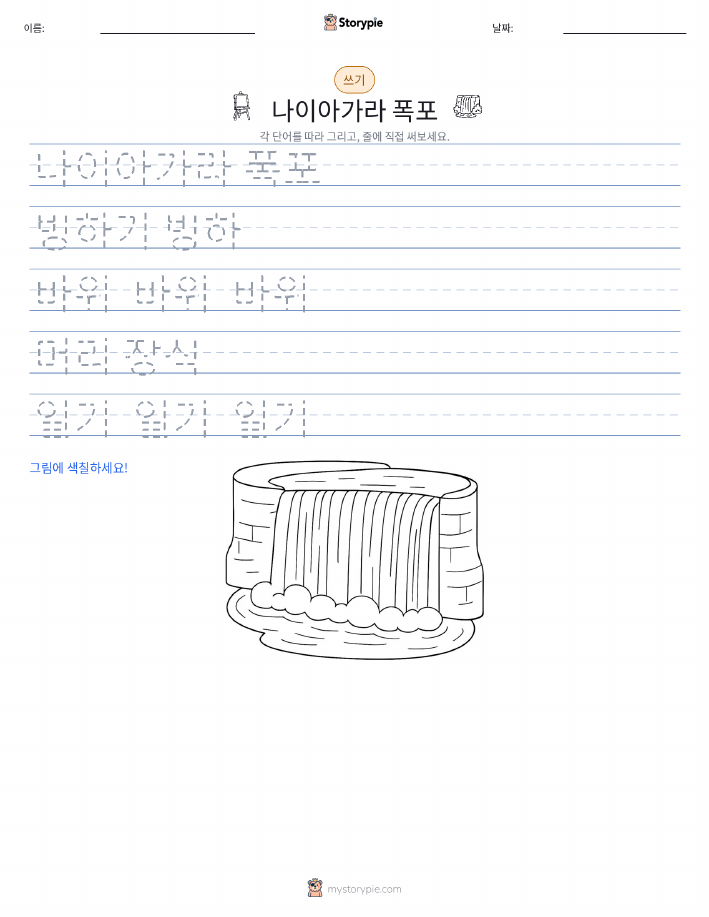 이름:
Storypie
날짜:
쓰기
나이아가라 폭포
각 단어를 따라 그리고, 줄에 직접 써보세요.
나이아가라 폭포
빙하기 빙하
바위 바위 바위
머리 장식
읽기 읽기 읽기
그림에 색칠하세요!
mystorypie.com